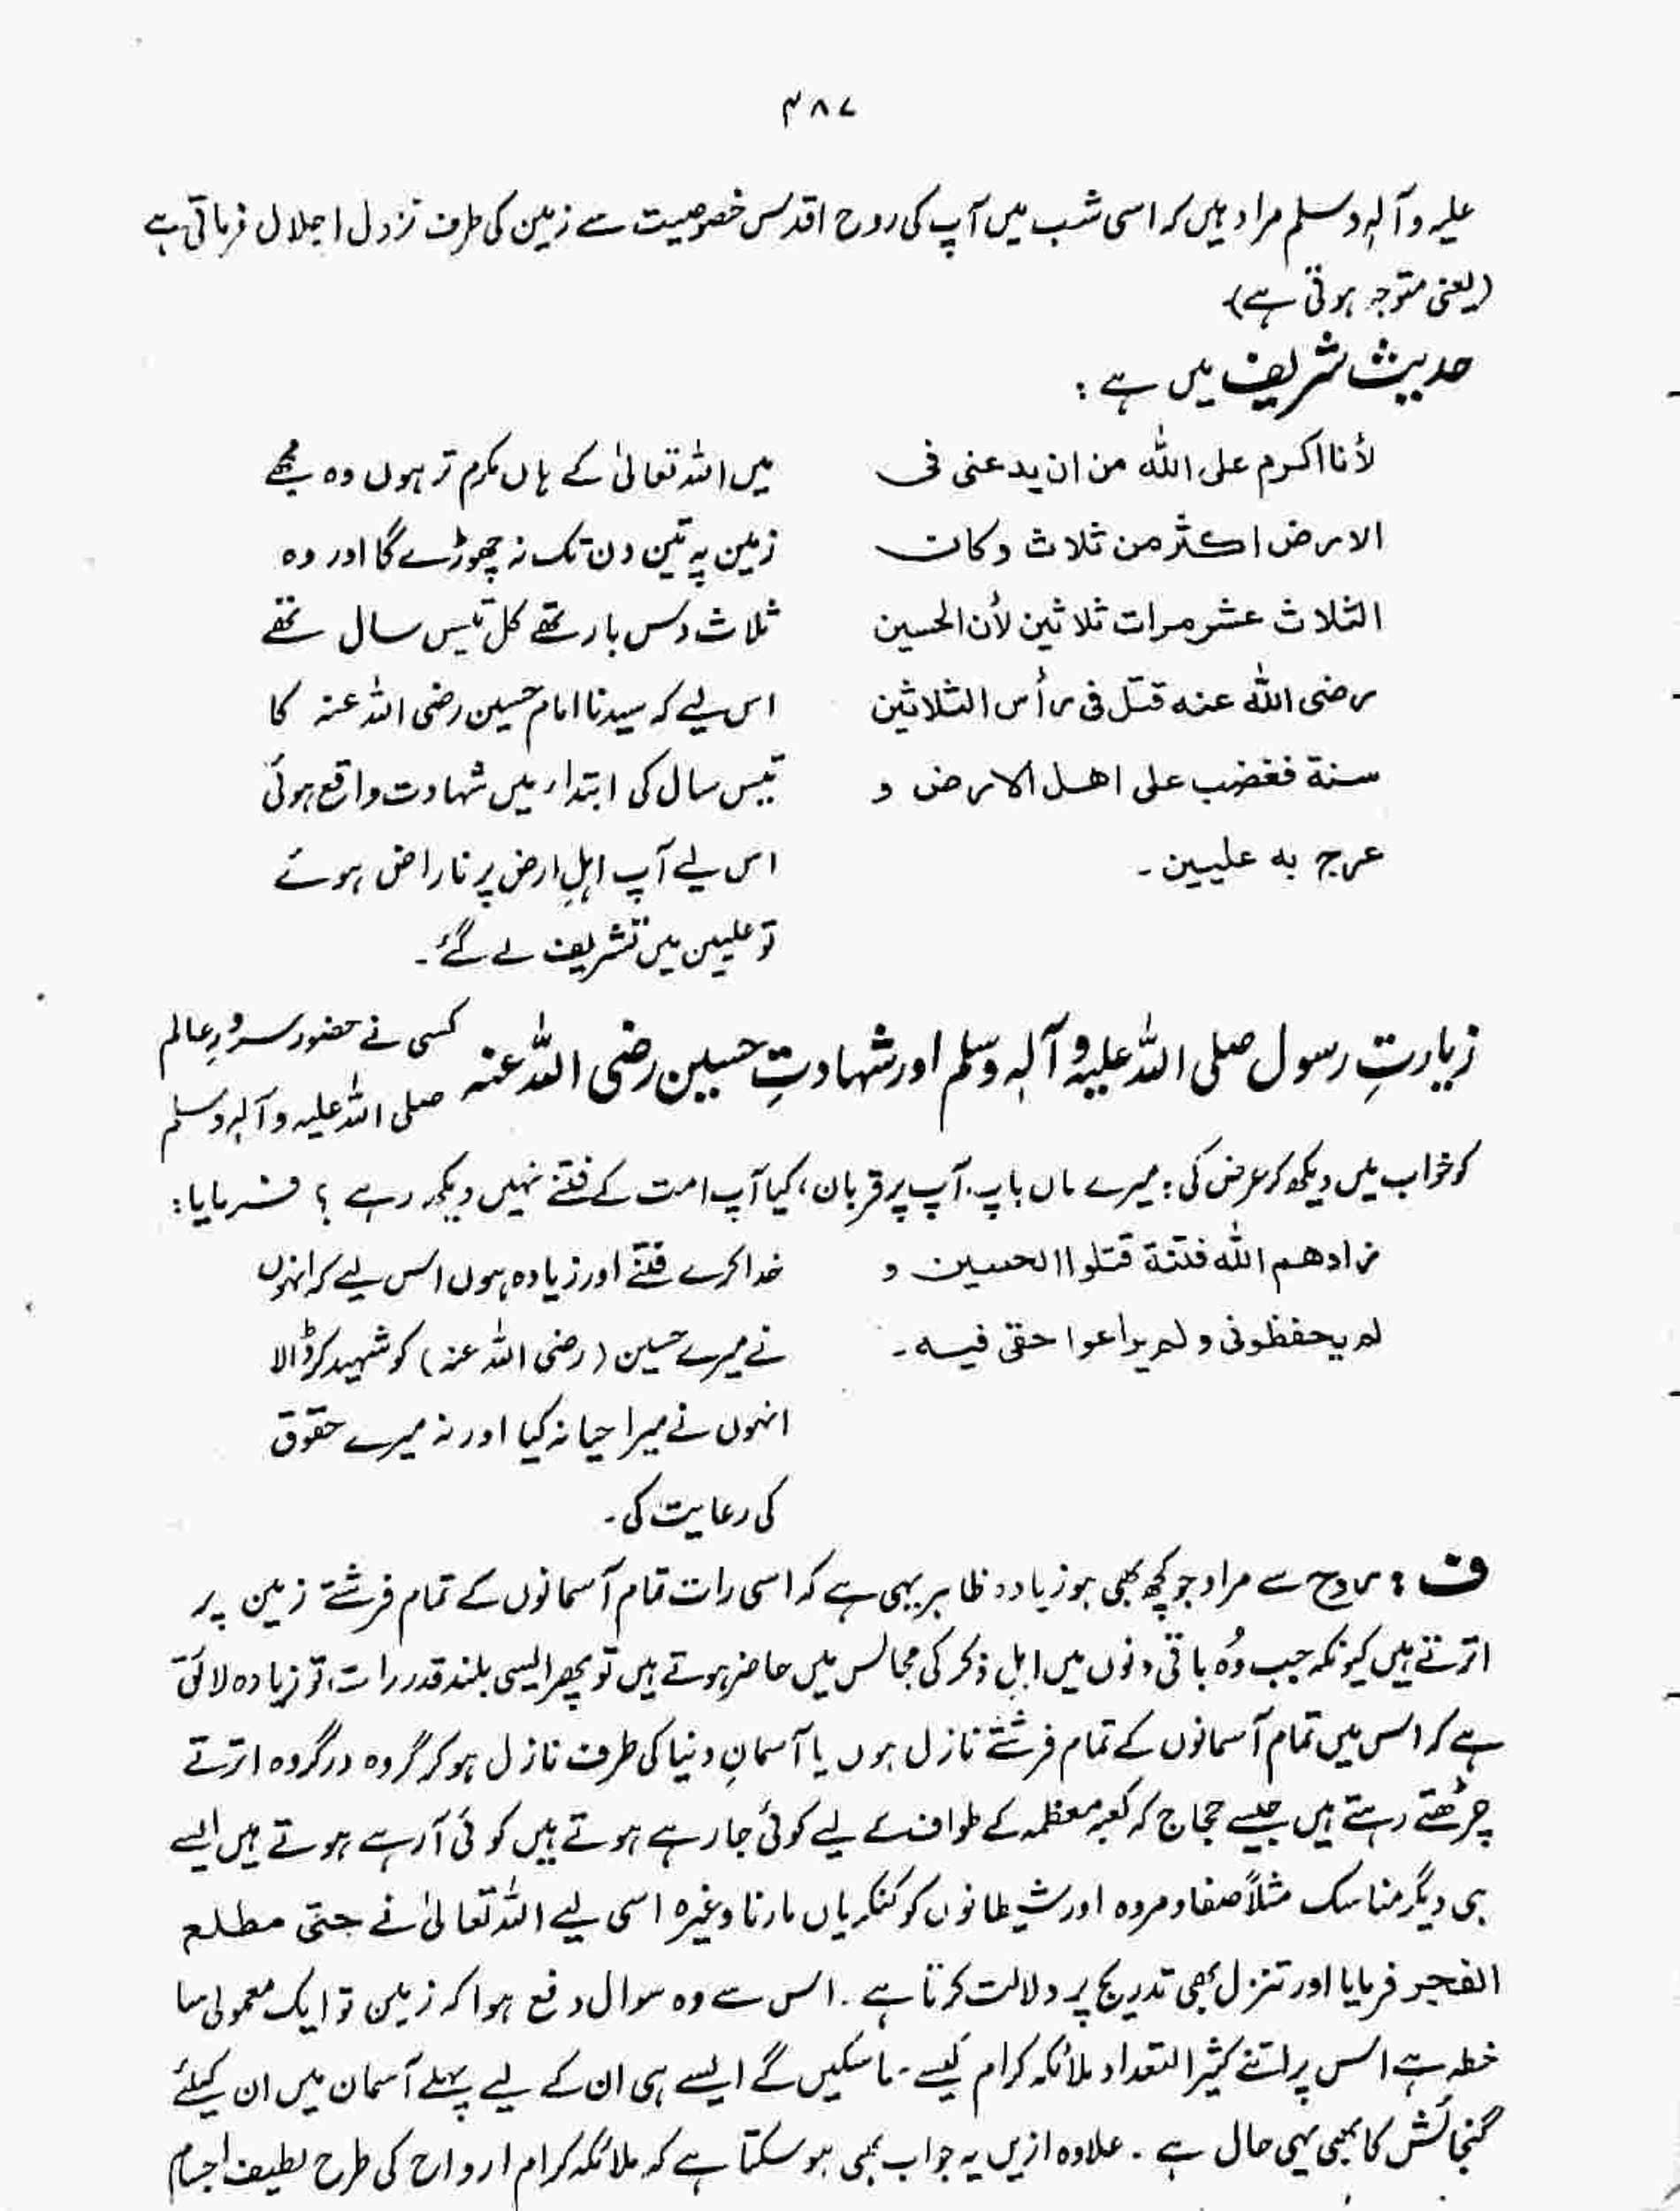 ۳۸۷
علیہ وآلہٖ وسلم مراد ہیں کہ اسی شب میں آپ کی روح اقدس خصوصیت سے زمین کی طرف نزول اجلال فرماتی ہے
(یعنی متوجہ ہوتی ہے)
حدیث شریف میں ہے :
لأنا اکرم علی اللہ من ان یدعنی فی
الارض اکثر من ثلاث وکان
الثلاث عشر مرات ثلاثین لأن الحسین
رضی اللہ عنہ قتل فی رأس الثلاثین
سنة فغضب علی اھل الارض و
عرج بہ علیین ۔
میں اللہ تعالیٰ کے ہاں مکرم تر ہوں وہ مجھے
زمین پہ تین دن تک نہ چھوڑے گا اور وہ
ثلاث دس بار تھے کل تیس سال تھے
اس لیے کہ سیدنا امام حسین رضی اللہ عنہ کا
تیس سال کی ابتداء میں شہادت واقع ہوئی
اس لیے آپ اہلِ ارض پر ناراض ہوئے
تو علیین میں تشریف لے گئے ۔
زیارتِ رسول صلی اللہ علیہ وآلہٖ وسلم اور شہادتِ حسین رضی اللہ عنہ
کسی نے حضور سرورِ عالم
صلی اللہ علیہ وآلہٖ وسلم
کو خواب میں دیکھ کر عرض کی : میرے ماں باپ آپ پر قربان ، کیا آپ امت کے فتنے نہیں دیکھ رہے ؟ فرمایا :
زادھم اللہ فتنة قتلوا الحسین و
لم یحفظونی ولم یراعوا حقی فیہ ۔
خدا کرے فتنے اور زیادہ ہوں اس لیے کہ انہوں
نے میرے حسین (رضی اللہ عنہ) کو شہید کر ڈالا
انہوں نے میرا حیا نہ کیا اور نہ میرے حقوق
کی رعایت کی ۔
ف : روح سے مراد جو کچھ بھی ہو زیادہ ظاہر یہی ہے کہ اسی رات تمام آسمانوں کے تمام فرشتے زمین پر
اترتے ہیں کیونکہ جب وُہ باقی دنوں میں اہلِ ذکر کی مجالس میں حاضر ہوتے ہیں تو پھر ایسی بلند قدر رات تو زیادہ لائق
ہے کہ اس میں تمام آسمانوں کے تمام فرشتے نازل ہوں یا آسمانِ دنیا کی طرف نازل ہو کر گروہ در گروہ اترتے
چڑھتے رہتے ہیں جیسے حجاج کہ کعبہ معظمہ کے طواف کے لیے کوئی جا رہے ہوتے ہیں کوئی آ رہے ہوتے ہیں ایسے
ہی دیگر مناسک مثلاً صفا و مروہ اور شیطانوں کو کنکریاں مارنا وغیرہ اسی لیے اللہ تعالیٰ نے حتی مطلع
الفجر فرمایا اور تنزل بھی تدریج پر دلالت کرتا ہے ۔ اس سے وہ سوال دفع ہوا کہ زمین تو ایک معمولی سا
خطہ ہے اس پر اتنے کثیر التعداد ملائکہ کرام کیسے سما سکیں گے ایسے ہی ان کے لیے پہلے آسمان میں ان کیلئے
گنجائش کا بھی یہی حال ہے ۔ علاوہ ازیں یہ جواب بھی ہو سکتا ہے کہ ملائکہ کرام ارواح کی طرح لطیف اجسام